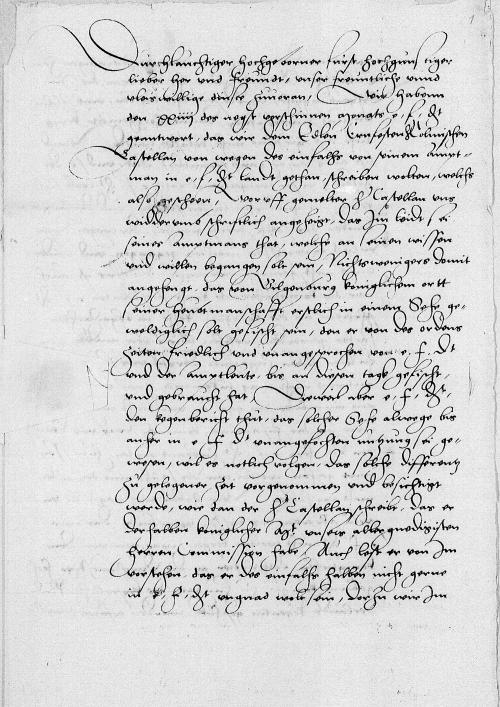 Durchlauchtiger Hochgeborner furst hochgunstiger
lieber her und freundt, unser freuntliche unnd
vleiswillige dinst zuvoran, Wir habenn
den XXiiii des negst verschinen monats e, f, dt
geantwort, das wir dem Edlen Ernfesten
Castellan von wegen des einfalhs von seinem Ampt-
man in e, f, dt landt gethan, schreiben wolten, welchs
also gescheen, Doruff gemelter h Castellan uns
widderumb schriftlich angezeigt, das Im leidt sei
seines Amptmans that, welche an seinen wissen
und willen begangen sole sein, Nichtswenigers damit
angehengt, das von Gilgenburg koniglichem ortt
seiner Hauptmanschafft erstlich in einem Sehe ge-
weldiglich sole gefischt sein, den er von des ordens
zeiten friedlich und unangesprochen von e, f, dt
und der Amptleute, bis an diesen tagk gefischt,
und gebraucht hat, Dieweil aber e, f, dt,
den kegenbericht thut, das solcher Sehe alwege bis
anher in e f dt unangefochten nutzung sei ge-
wesen, wil es notlich volgen, das solche differentz
zu gelegener zeit vorgenommen und besichtigt
werde, wie dan der h Castellan schreibt, das er
derhalben koniglicher Mat unsers allergnedigisten
herren Commission habe, Auch lest er von Im
vorstehen, das er des einfalhs halben nicht gerne
in e, f, dt ungnad wolt sein, dorzu wir Im